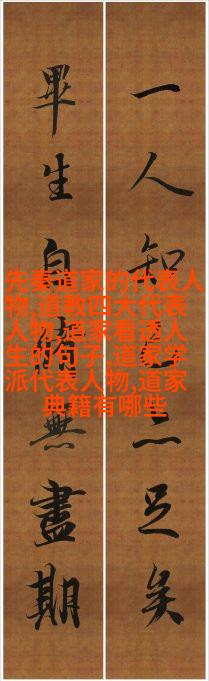 一人知足矣
畢生自修無盡期
先秦道家的代表人
物,道教四大代表
人物,道家看透人
生的句子,道家学
派代表人物,道家
典籍有哪些